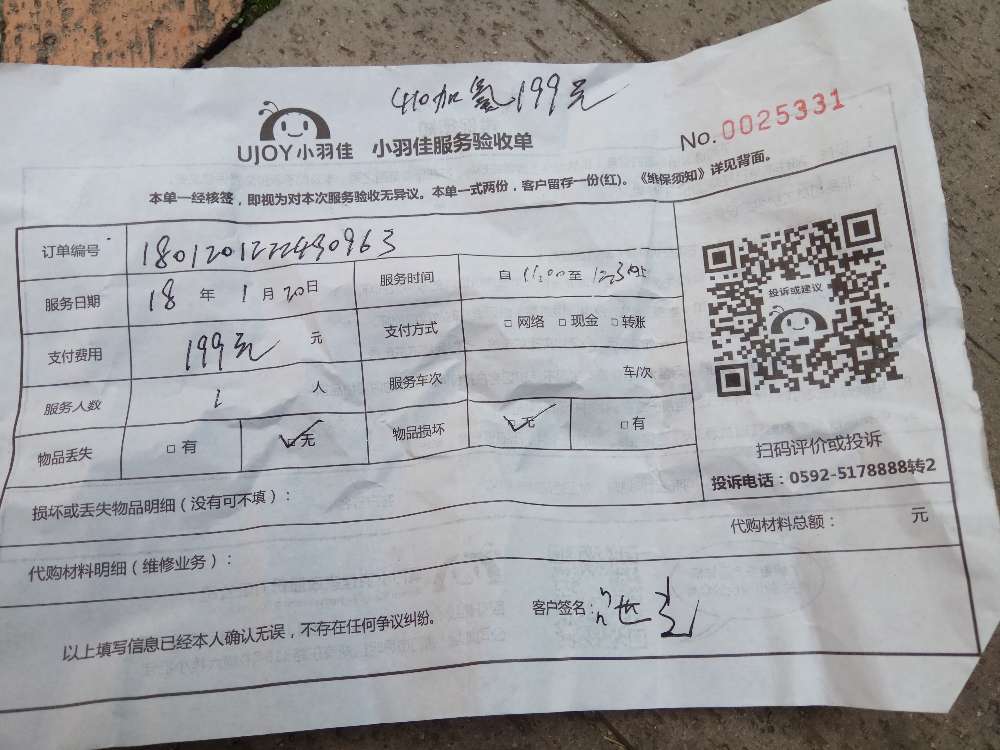 410加氢199元
UJOY小羽佳 小羽佳服务验收单
No.0025331
本单一经核签，即视为对本次服务验收无异议。本单一式两份，客户留存一份(红)。《维保须知》详见背面。
订单编号
服务日期 18 年 1 月 20 日 服务时间 自 11:00 至
支付费用 199元 元 支付方式 □ 网络 □ 现金 □ 转账
服务人数 1 人 服务车次 车/次
物品丢失 □ 有 □ 无 物品损坏 □ 无 □ 有
投诉或建议
扫码评价或投诉
投诉电话：0592-5178888转2
损坏或丢失物品明细（没有可不填）：
代购材料总额： 元
代购材料明细（维修业务）：
以上填写信息已经本人确认无误，不存在任何争议纠纷。
客户签名：